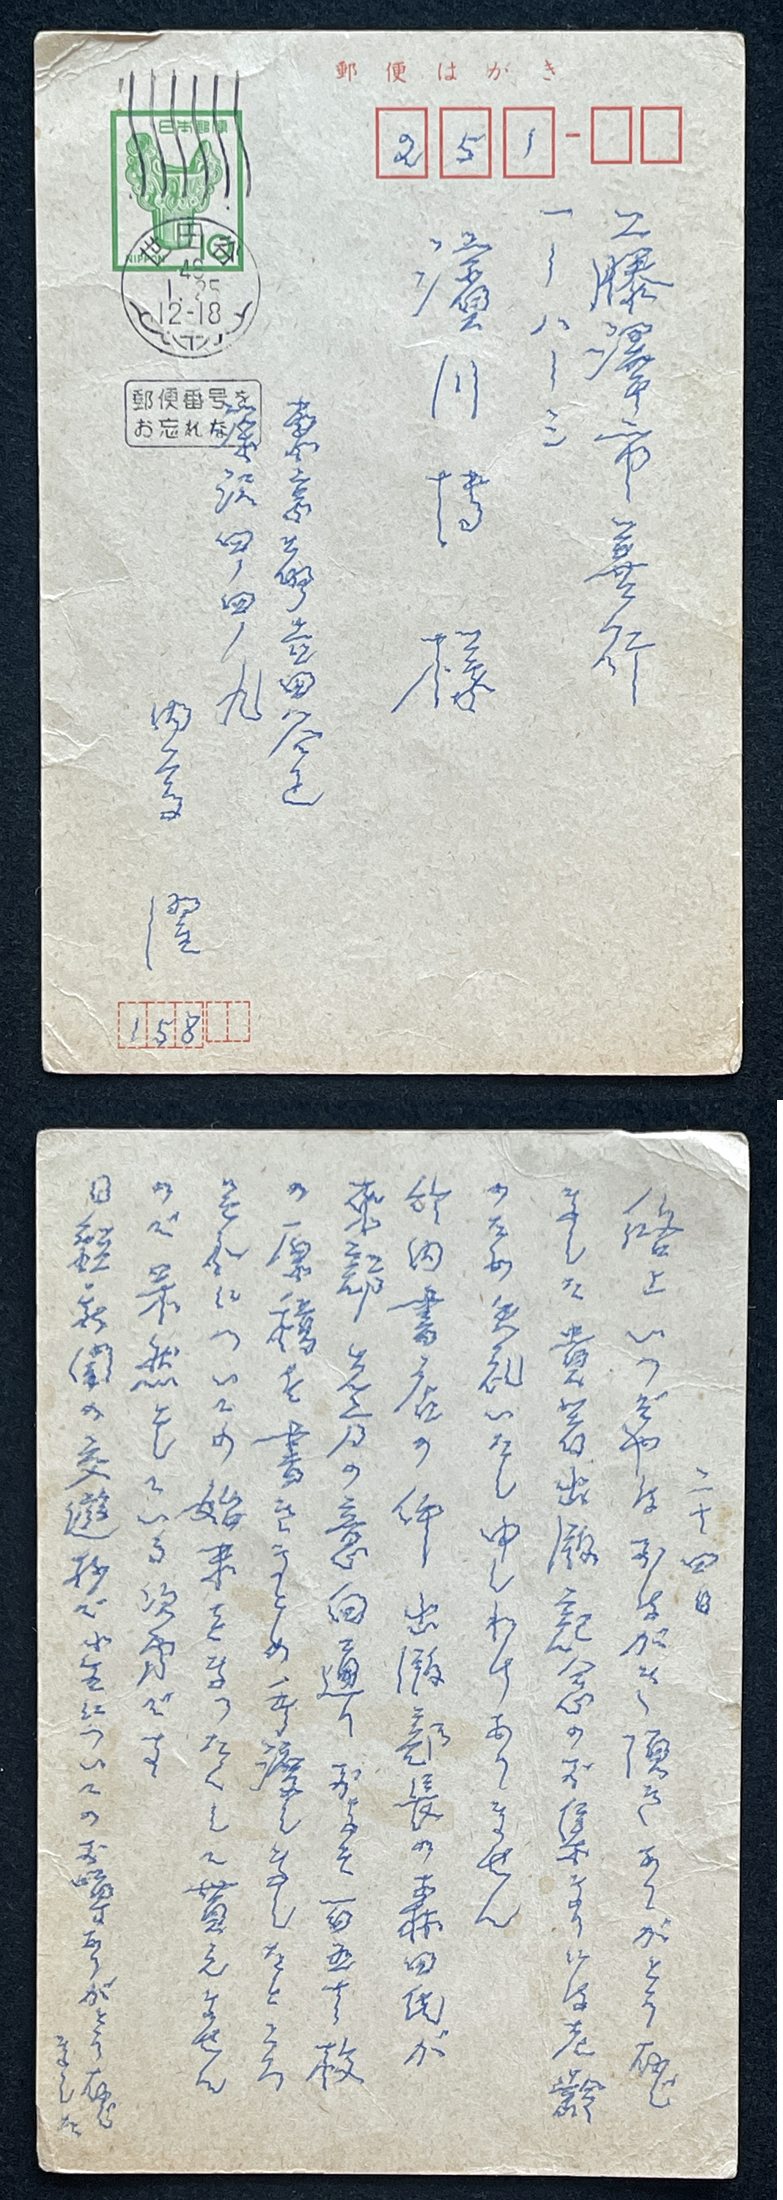 郵便はがき
日本郵便
10
NIPPON
251
49
1.25
12-18
郵便番号を
お忘れな
藤澤市
一ノ八ノ三
濱川博様
東京世田谷区
深沢四ノ四ノ九
内藤 濯
158
二十四日
拝啓 いつぞやはおはがき頂きありがとう存じ
ました 貴著出版記念のお集まりには老齢
のため失礼いたし申しわけありません
書店の件 出版部長の森田君が
来訪 の意向通りおよそ百五十枚
の原稿を書きまとめ手渡しましたところ
それについての始末をまったくして貰えません
ので呆然としている次第です
日経新聞の交遊抄で小生についてのお言葉ありがとう存じ
ました